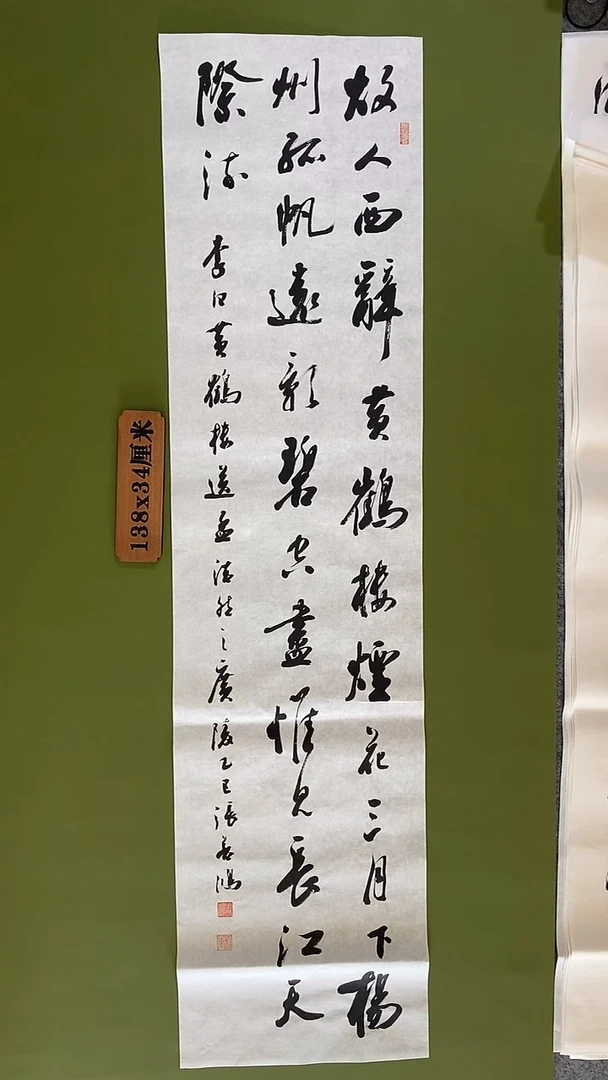 故人西辭黄鶴樓煙花三月下楊
州孤帆遠影碧空盡惟見長江天
際流
李白黄鶴樓送孟浩然之廣陵乙巳張善鴻
138x34厘米